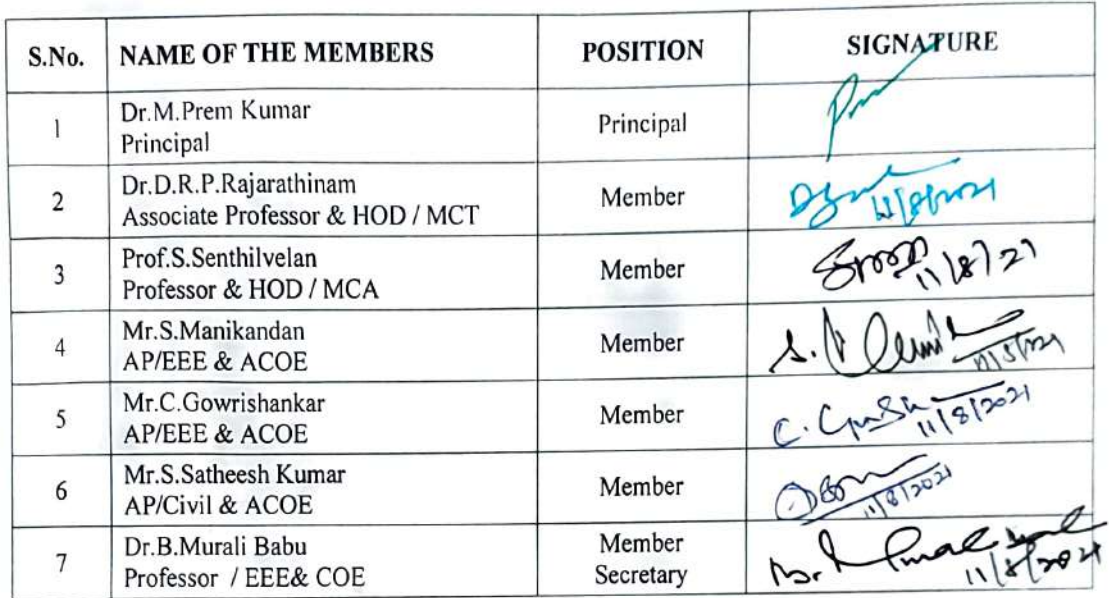 S.No. NAME OF THE MEMBERS POSITION SIGNATURE
1 Dr.M.Prem Kumar
Principal Principal
2 Dr.D.R.P.Rajarathinam
Associate Professor & HOD / MCT Member 11/8/2021
3 Prof.S.Senthilvelan
Professor & HOD / MCA Member 11/8/21
4 Mr.S.Manikandan
AP/EEE & ACOE Member S.
5 Mr.C.Gowrishankar
AP/EEE & ACOE Member C. 11/8/2021
6 Mr.S.Satheesh Kumar
AP/Civil & ACOE Member 11/8/2021
7 Dr.B.Murali Babu
Professor / EEE& COE Member
Secretary 11/8/2021